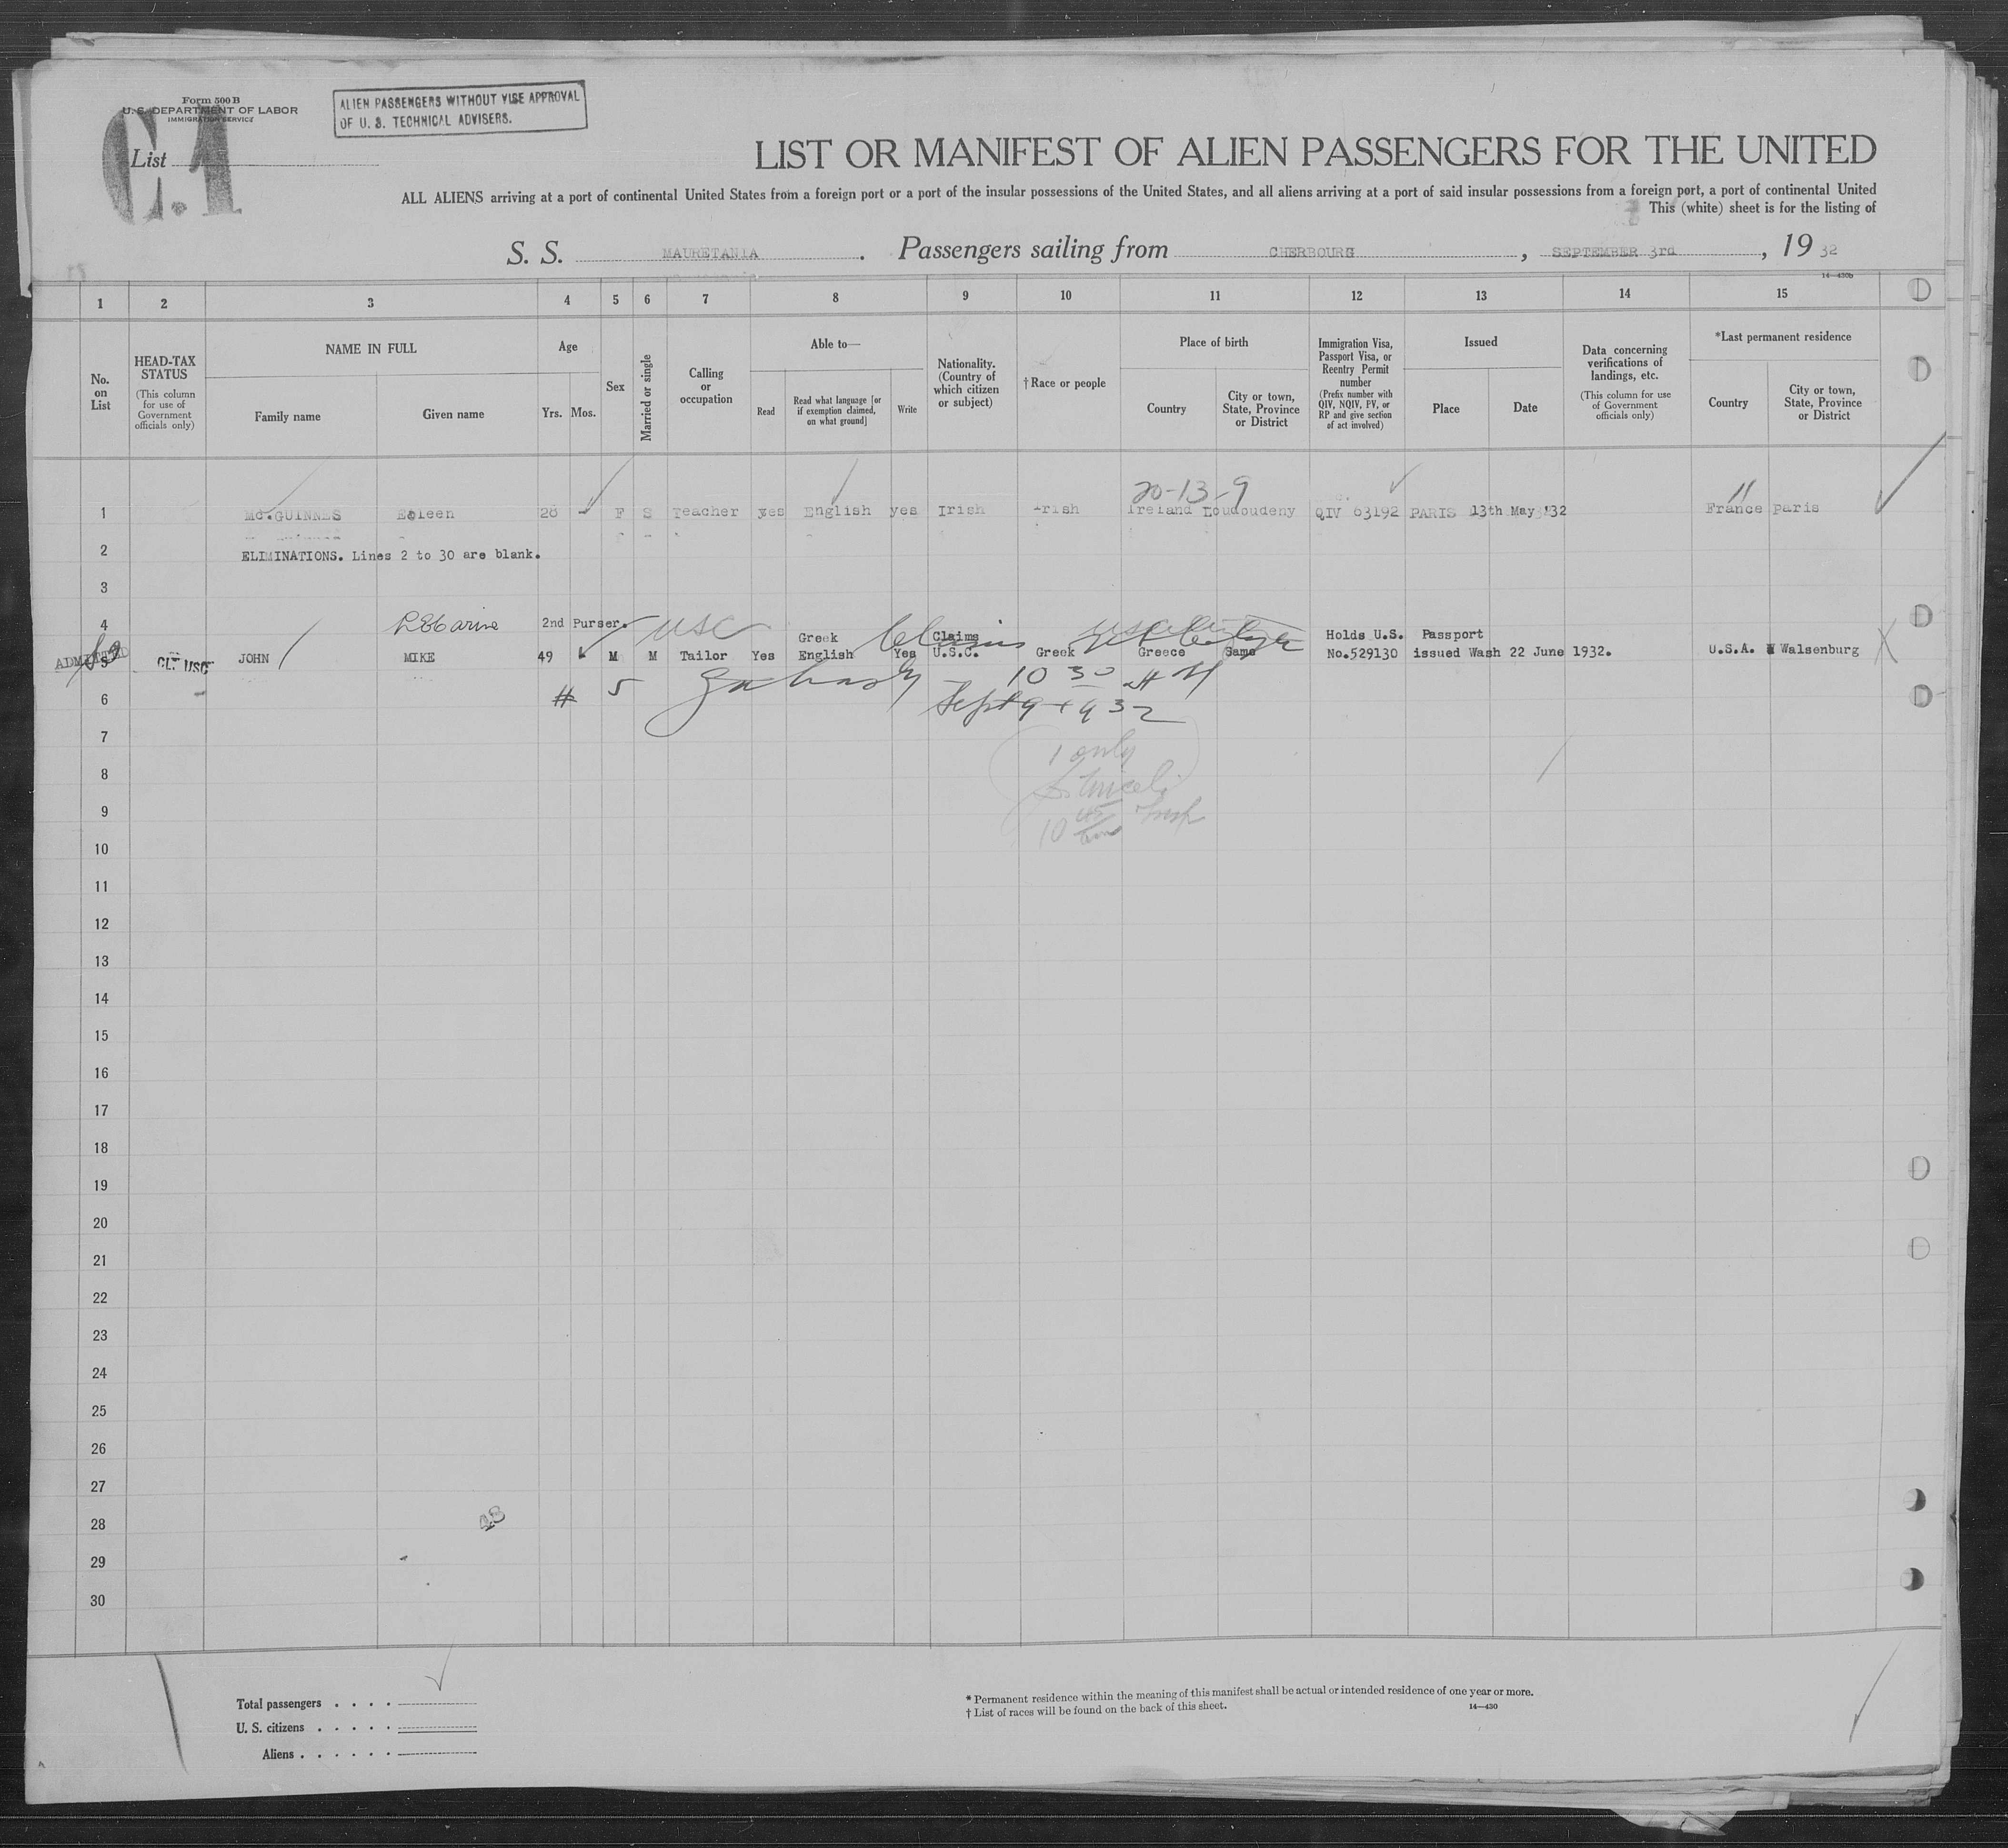 Form 500 B
U. S. DEPARTMENT OF LABOR
IMMIGRATION SERVICE
ALIEN PASSENGERS WITHOUT VISE APPROVAL
OF U. S. TECHNICAL ADVISERS.
List
C.1
LIST OR MANIFEST OF ALIEN PASSENGERS FOR THE UNITED
ALL ALIENS arriving at a port of continental United States from a foreign port or a port of the insular possessions of the United States, and all aliens arriving at a port of said insular possessions from a foreign port, a port of continental United
This (white) sheet is for the listing of
S. S. MAURETANIA . Passengers sailing from CHERBOURG , SEPTEMBER 3rd , 19 32
14—430b
1 2 3 4 5 6 7 8 9 10 11 12 13 14 15
No. on List
HEAD-TAX STATUS
(This column for use of Government officials only)
NAME IN FULL
Family name
Given name
Age
Yrs. Mos.
Sex
Married or single
Calling or occupation
Able to—
Read
Read what language [or if exemption claimed, on what ground]
Write
Nationality. (Country of which citizen or subject)
† Race or people
Place of birth
Country
City or town, State, Province or District
Immigration Visa, Passport Visa, or Reentry Permit number
(Prefix number with QIV, NQIV, PV, or RP and give section of act involved)
Issued
Place
Date
Data concerning verifications of landings, etc.
(This column for use of Government officials only)
*Last permanent residence
Country
City or town, State, Province or District
20-13-9
11
1 Mc.GUINNES Eileen 28 F S Teacher yes English yes Irish Irish Ireland QIV 63192 PARIS 13th May '32 France paris
2 ELIMINATIONS. Lines 2 to 30 are blank.
3
4 2nd Purser. USC
Greek Claims Holds U.S. Passport
ADMITTED 5 USC JOHN MIKE 49 M M Tailor Yes English Yes U.S.C. Greek Greece Same No.529130 issued Wash 22 June 1932. U.S.A. Walsenburg
# 5 10 30 AM
6 Sept 9 1932
7
1 only
8
9
10
11
12
13
14
15
16
17
18
19
20
21
22
23
24
25
26
27
28
29
30
Total passengers . . . .
U. S. citizens . . . . .
Aliens . . . . . .
* Permanent residence within the meaning of this manifest shall be actual or intended residence of one year or more.
† List of races will be found on the back of this sheet.
14—430